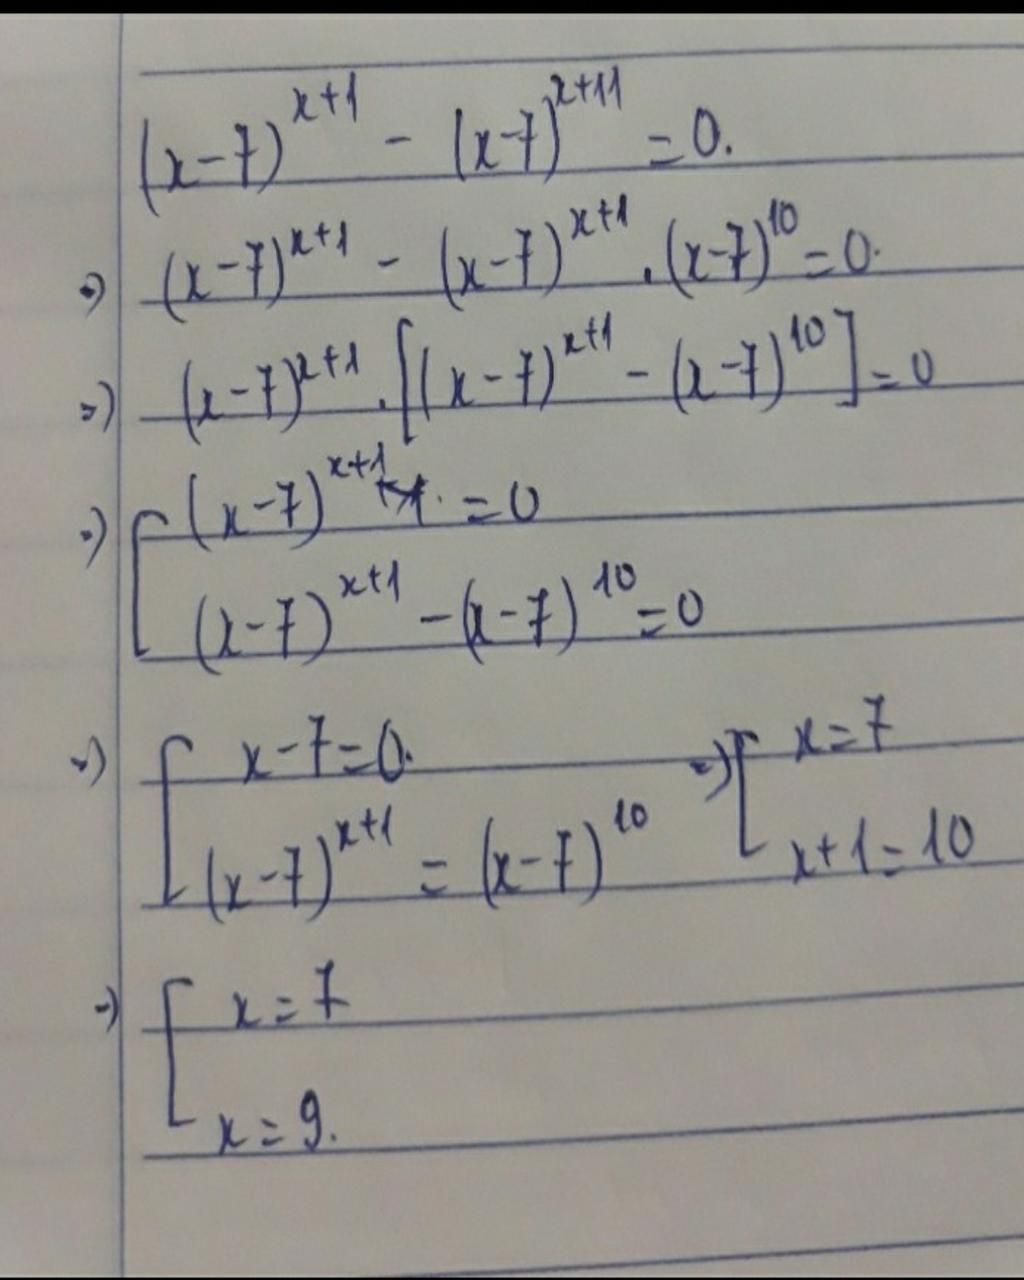 (x-7)^{x+1} - (x-7)^{x+11} = 0.
=) (x-7)^{x+1} - (x-7)^{x+1} . (x-7)^{10} = 0.
=) (x-7)^{x+1} . [(x-7)^{x+1} - (x-7)^{10}] = 0
=) [ (x-7)^{x+1} = 0
(x-7)^{x+1} - (x-7)^{10} = 0
=) [ x-7=0. =) [ x=7
(x-7)^{x+1} = (x-7)^{10} x+1=10
=) [ x=7
x=9.